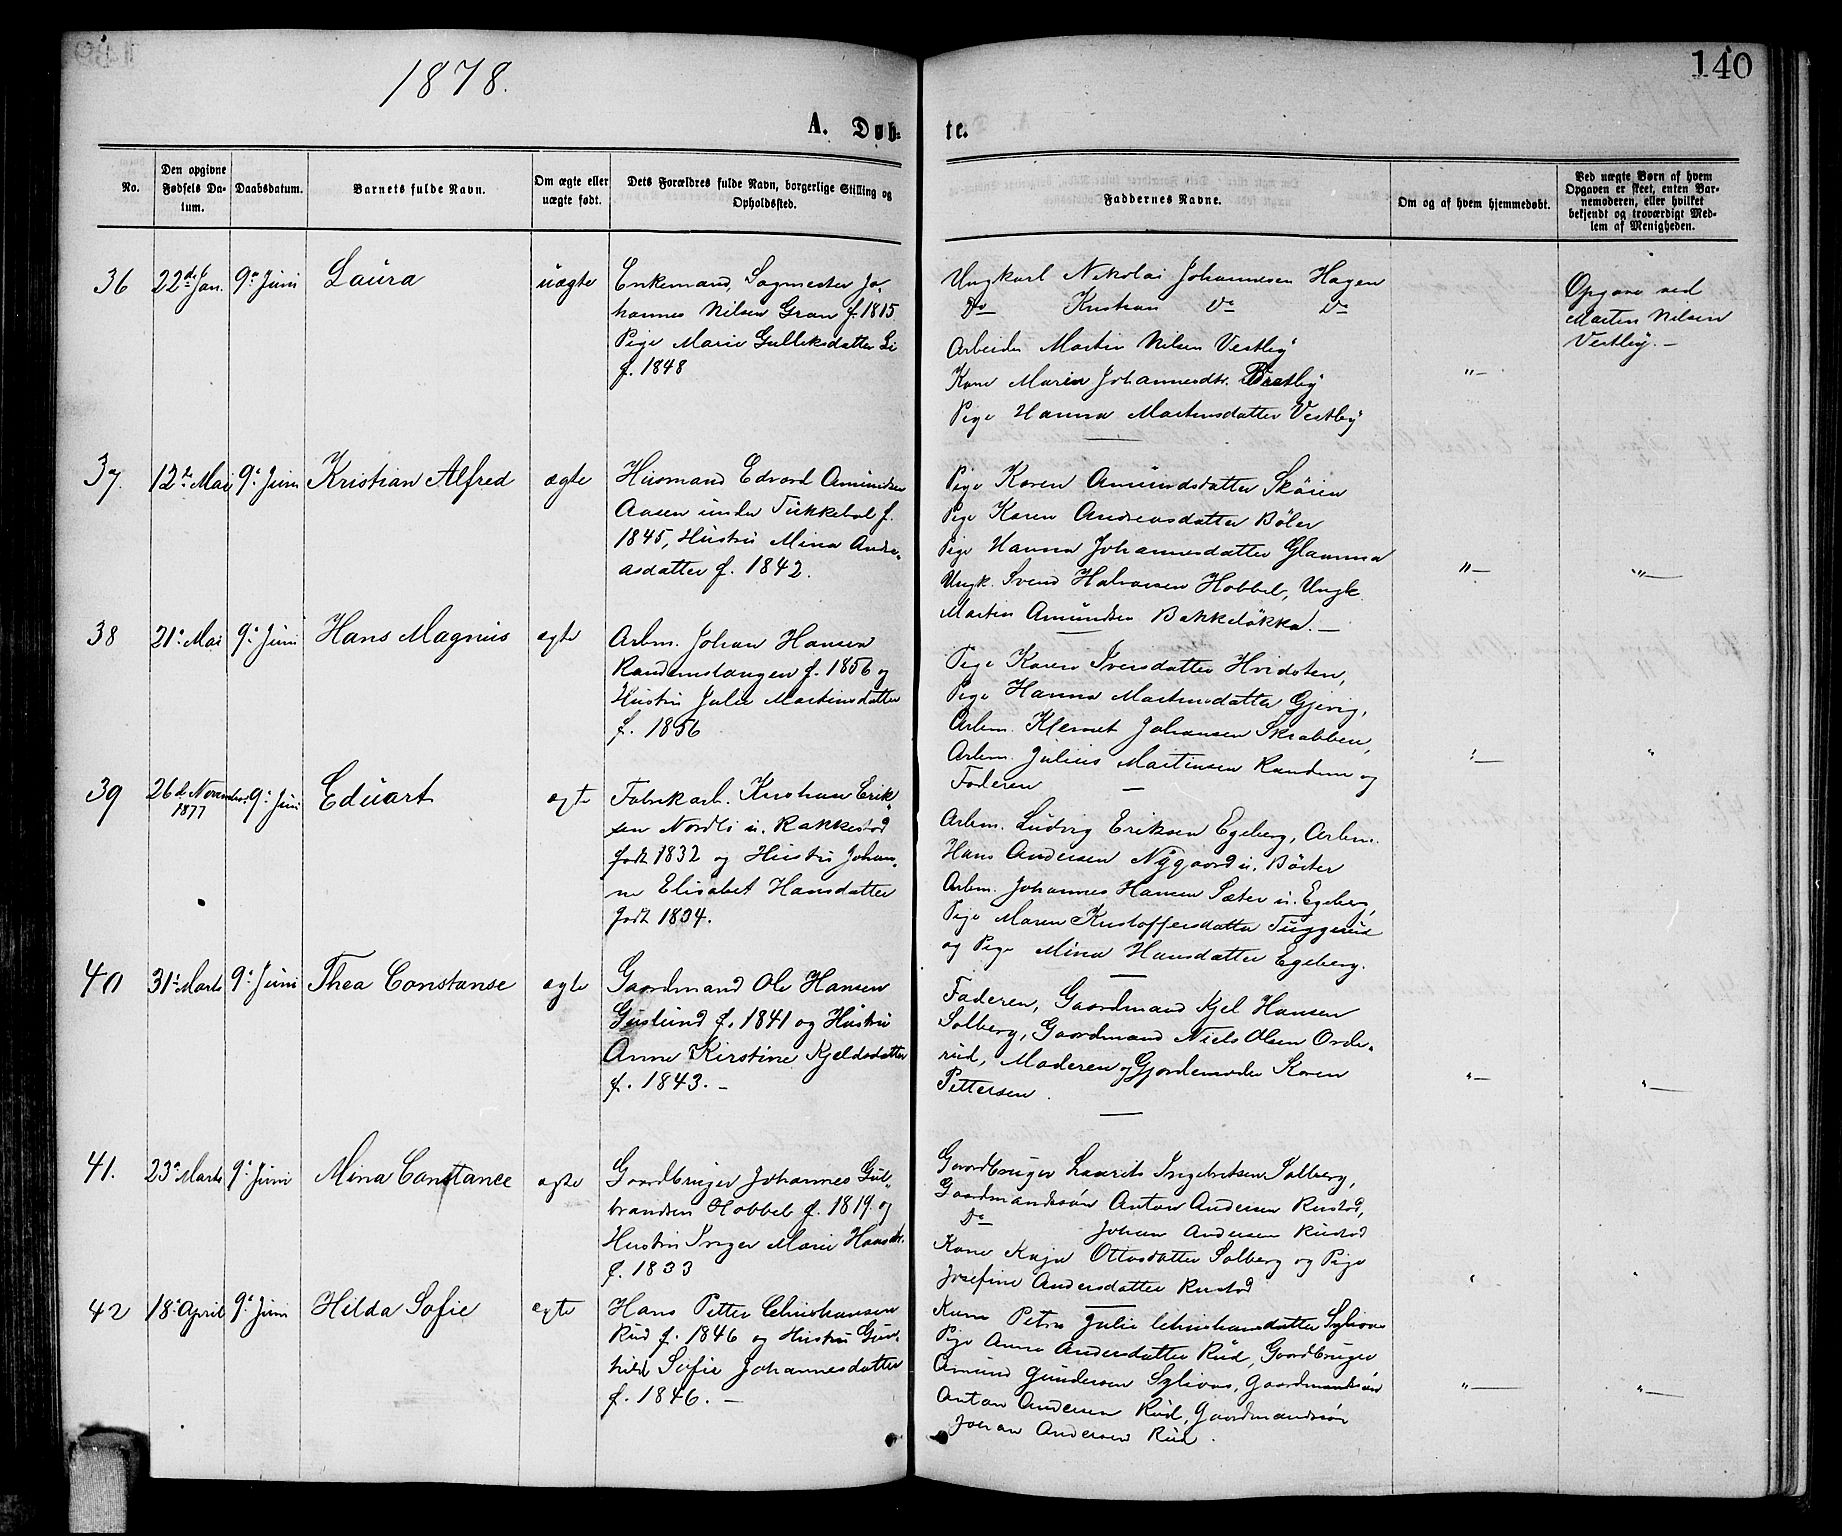 140
1878.
A. Døb-
te.
No.
Den opgivne
Fødsels Da-
tum.
Daabsdatum.
Barnets fulde Navn.
Om ægte eller
uægte født.
Dets Forældres fulde Navn, borgerlige Stilling og
Opholdssted.
Faddernes Navne.
Om og af hvem hjemmedøbt.
Ved uægte Børn af hvem
Opgaven er skeet, enten Bar-
nemoderen, eller hvilket
bekjendt og troværdigt Med-
lem af Menigheden.
36 22de Jan. 9de Juni Laura uægte
Enkemand, Sagmester Jo-
hannes Nilsen Gran f. 1815
Pige Marie Gulliksdatter Li
f. 1848
Ungkarl Nikolai Johannesen Hagen
Do Kristian Do Do
Arbeider Martin Nilsen Vestby
Kone Maren Johannesdtr. Vestby
Pige Hanna Martinsdatter Vestby
"—
Opgave ved
Martin Nilsen
Vestby. —
37. 12te Mai 9de Juni Kristian Alfred ægte
Husmand Edvard Amundsen
Aasen under Tukkebøl f.
1845, Hustru Mina Andre-
asdatter f. 1842.
Pige Karen Amundsdatter Skøien
Pige Karen Andreasdatter Bøler
Pige Hanna Johannesdatter Glamma
Ungk. Svend Halvorsen Hobbel, Ungk.
Martin Amundsen Bakkeløkka. —
"—
"—
38 21de Mai 9de Juni Hans Magnus ægte
Arbm. Johan Hansen
Randemslangen f. 1856 og
Hustru Julie Martinsdatter
f. 1856
Pige Karen Iversdatter Hvidsten,
Pige Hanna Martinsdatter Gjevig,
Arbm. Klemet Johansen Skrabben,
Arbm. Julius Martinsen Randem og
Faderen —
"—
"
39 26de November 1877 9de Juni Eduart ægte
Fabrikarb. Kristian Erik-
sen Nordli u. Rakkestad
født 1832 og Hustru Johan-
ne Elisabet Hansdatter
født 1834.
Arbm. Ludvig Eriksen Egeberg, Arbm.
Hans Andersen Nygaard u. Bøeter
Arbm. Johannes Hansen Sæter u. Egeberg,
Pige Maren Kristoffersdatter Tuggerud
og Pige Mina Hansdatter Egeberg.
40 31te Marts 9de Juni Thea Constanse ægte
Gaardmand Ole Hansen
Guslund f. 1841 og Hustru
Anne Kirstine Kjeldsdatter
f. 1843. —
Faderen, Gaardmand Kjel Hansen
Solberg, Gaardmand Niels Olsen Orde-
rud, Moderen og Gjordemoder Karen
Pettersen.
"—
"—
41. 23de Marts 9de Juni Mina Constance ægte
Gaardbruger Johannes Gul-
brandsen Hobbel f. 1819 og
Hustru Inger Marie Hansdtr.
f. 1833
Gaardbruger Laurits Ingebretsen Solberg,
Gaardmandssøn Anton Andersen Rustad,
Do Johan Andersen Rustad
Kone Kaja Ottosdatter Solberg og Pige
Josefine Andersdatter Rustad
"
"
42 18de April 9de Juni Hilda Sofie ægte
Hans Petter Christiansen
Rud f. 1846 og Hustru Gun-
hild Sofie Johannesdatter
f. 1846. —
Kone Petra Julie Christiansdatter
Pige Anna Andersdatter Rud, Gaardbruger
Amund Gundersen Sylivas, Gaardmandssøn
Anton Andersen Rud, Gaardmandssøn
Johan Andersen Rud.
"—
"—